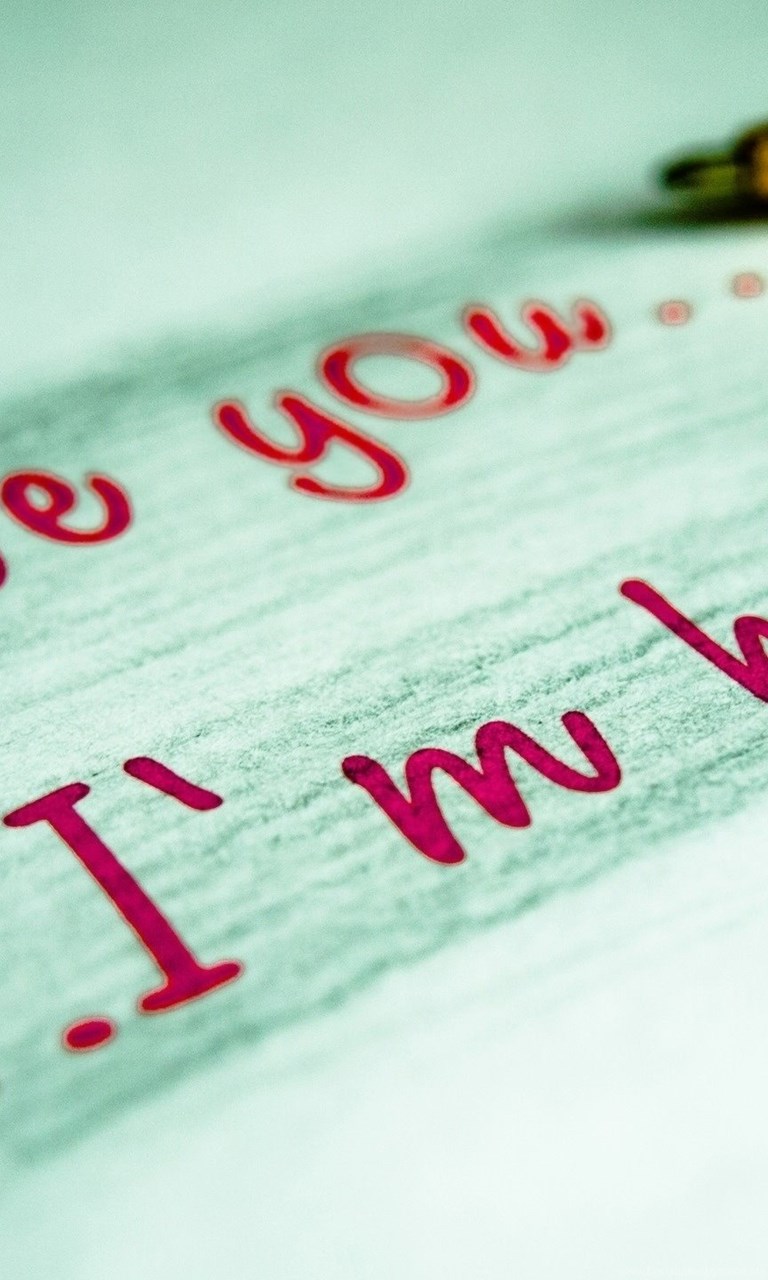 e you..
.I'm